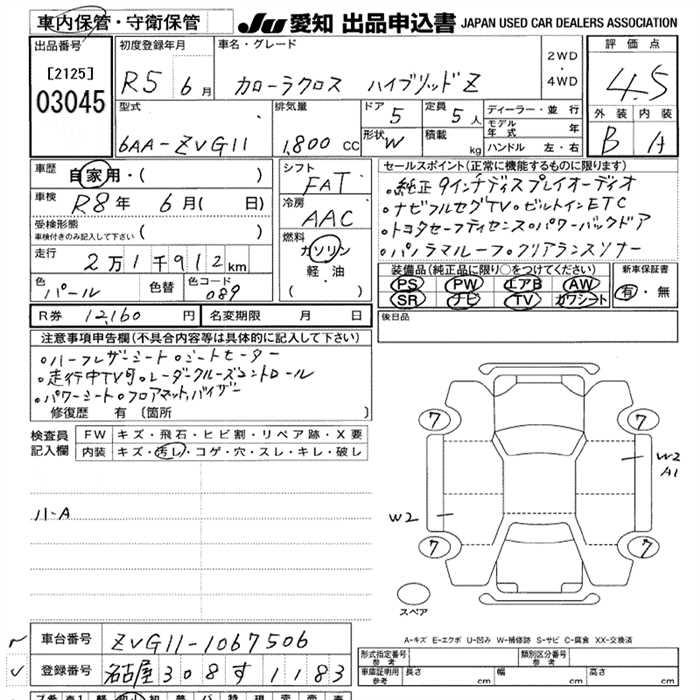 車内保管・守衛保管 JU 愛知 出品申込書 JAPAN USED CAR DEALERS ASSOCIATION
出品番号 初度登録年月 車名・グレード 2WD ・ 4WD 評価点
[2125] R5 6月 カローラクロス ハイブリッドZ 4.5
03045 型式 排気量 ドア 5 定員 5人 ディーラー・並行 外装 内装
6AA-ZVG11 1,800 CC 形状 W 積載 kg モデル年式 年 B A
ハンドル 左・右
車歴 自家用・( ) シフト FAT セールスポイント(正常に機能するものに限ります)
車検 R8年 6月( 日) 冷房 AAC ・純正9インチディスプレイオーディオ
受検形態 ・ナビフルセグTV・ビルトインETC
車検付きのみ記入して下さい ( ) 燃料 ・トヨタセーフティセンス・パワーバックドア
走行 2万1千912km ガソリン ・パノラマルーフ・クリアランスソナー
軽・油 装備品(純正品に限り○をつけてください) 新車保証書
色 パール 色替 色コード 089 ( ) PS PW エアB AW 有・無
SR ナビ TV カワシート
R券 12,160円 名変期限 月 日 後日品
注意事項申告欄(不具合内容等は具体的に記入して下さい)
・ハーフレザーシート・シートヒーター
・走行中TV可・レーダークルーズコントロール
・パワーシート・フロアマット,バイザー
修復歴 有〔箇所 〕
検査員記入欄 FW キズ・飛石・ヒビ割・リペア跡・X要
内装 キズ・汚レ・コゲ・穴・スレ・キレ・破レ
7 7
W2 A1
ハ-A
W2
7 7
スペア
A-キズ E-エクボ U-凹み W-補修跡 S-サビ C-腐食 XX-交換済
車台番号 ZVG11-1067506
型式指定番号 参考 類別区分番号 参考
登録番号 名古屋 308 す 1183 車庫証明用 参考 長さ cm 幅 cm 高さ cm